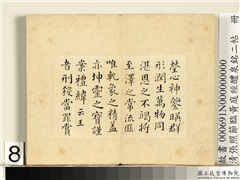 故書000691N000000000
清張照節臨黃庭經醴泉銘二帖 冊
瑩心神鑒暎群
形潤生萬物同
湛恩之不竭將
玄澤之常流匪
唯乾象之精蓋
亦坤靈之寶謹
案禮緯云王
者刑殺當罪賞
8
國立故宮博物院